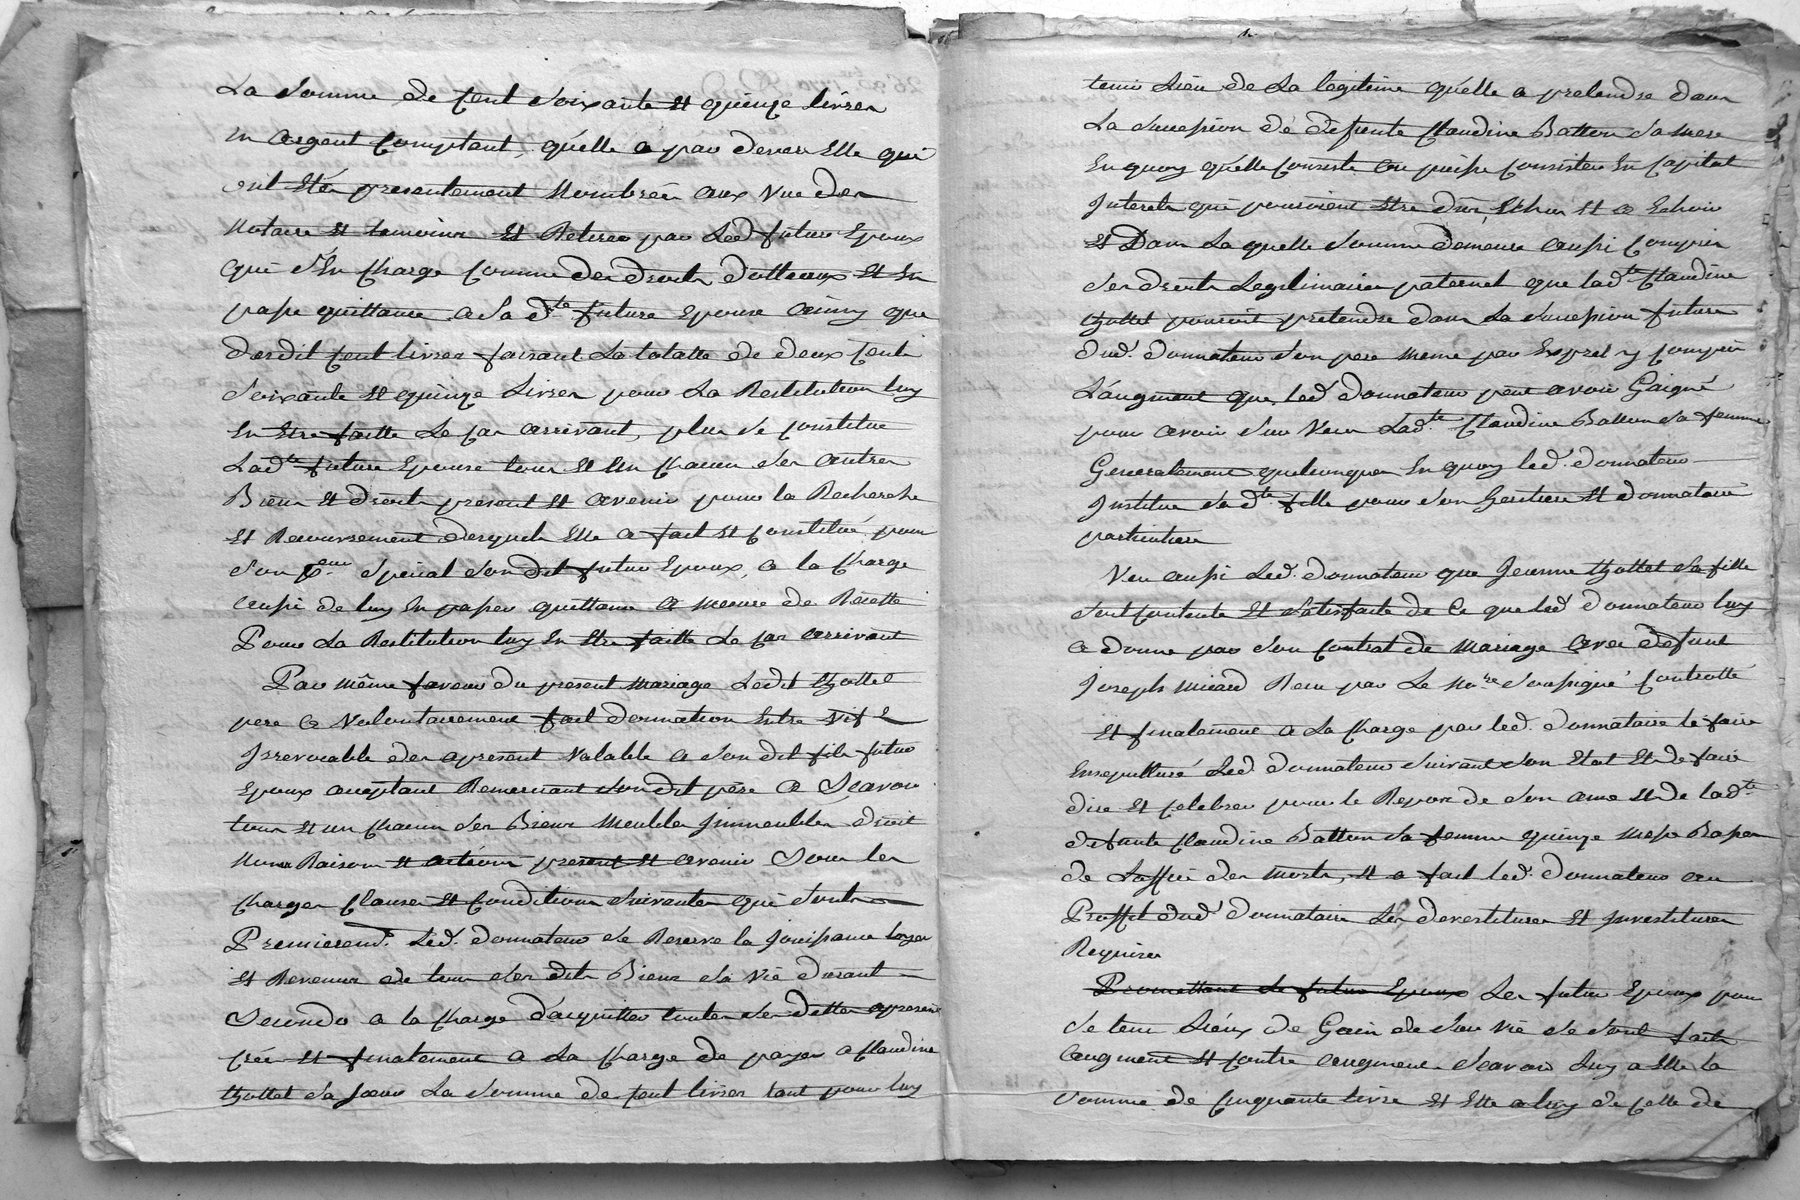 La Somme de Cent Soixante Et quinze livres
En argent Comptant, qu'elle a par devers Elle qui
ont Étés presentement Nombrées aux vue des
Notaire Et temoins Et Retirés par Led futur Epoux
qui s'En Charge Comme des droits dotteaux Et En
passe quittance a La d.te future Epouse Ainsy que
desdit Cent livres faisant La totalle de deux Cent
Soixante Et quinze Livres pour La Restitution luy
En Etre faitte Le Cas arrivant, plus Se Constitue
Lad.te future Epouse tous Et Un Chacun Ses autres
Biens Et droits present Et avenir pour la Recherche
Et Recouvrement desquels Elle a fait Et Constitué pour
Son p.eur Special Son dit futur Epoux, a la Charge
aussi de luy En passer quittance a mesure de Recette
Pour La Restitution luy En Etre faitte Le Cas arrivant
Par même faveur du present mariage Ledit thollet
pere a Volontairement fait donnation Entre Vif &
Irrevocable des apresent Valable a Son dit fils futur
Epoux acceptant Remerciant Son dit père a Scavoir
tous Et un Chacun Ses Biens Meubles Immeubles droit
Noms Raisons Et actions present Et avenir Sous les
Charges Clauses Et Conditions Suivantes qui Sont
Premierem.t Led. donnateur Se Reserve la Jouissance loyer
Et Revenus de tous Ses dits Biens Sa Vie durant
Secondo a la Charge d'acquitter toutes Ses dettes apresent
créé Et finalement a La Charge de payer a Claudine
thollet Sa Soeur La Somme de Cent livres tant pour luy
tenir Lieu de La legitime qu'elle a pretendre dans
La Succession de defunte Claudine Batton Sa mere
En quoy qu'elle Consiste ou puisse Consister En Capital
Interets qui pourroient Etre dûs, Echus Et a Echoir
Et Dans La quelle Somme demeure aussi Compris
Ses droits Legitimaires paternel que lad.te Claudine
thollet pourroit pretendre dans La Succession future
dud. donnateur Son pere meme par Exprés y Compris
L'augment que Led donnateur peut avoir Gaigné
pour avoir Survecu Lad.te Claudine Batton Sa femme
Generalement quelconques En quoy led. donnateur
Institue Sad.te fille pour Son heritiere Et donnataire
particuliere
Veu aussi Led. donnateur que Jeanne thollet Sa fille
Soit Contente Et Satisfaite de Ce que Led donnateur luy
a donne par Son Contrat de Mariage avec defunt
Joseph Micard Receu par Le No.re Soussigné Controllé
Et finalement a La Charge par led. donnataire de faire
Ensepulturé Led donnateur Suivant Son Etat Et de faire
dire Et Celebrer pour le Repos de Son ame Et de lad.te
defunte Claudine Batton Sa femme quinze Messe Basses
de Loffice des morts, Et a fait led. donnateur au
Proffit dud donnataire Les devestitures Et Investitures
Requises
Promettant Le futur Epoux Les futur Epoux pour
Se tenir Lieux de Gain de Sur Vie Se Sont faits
augment Et Contre augment Scavoir Luy a Elle la
Somme de Cinquante livre Et Elle a luy de Celle de